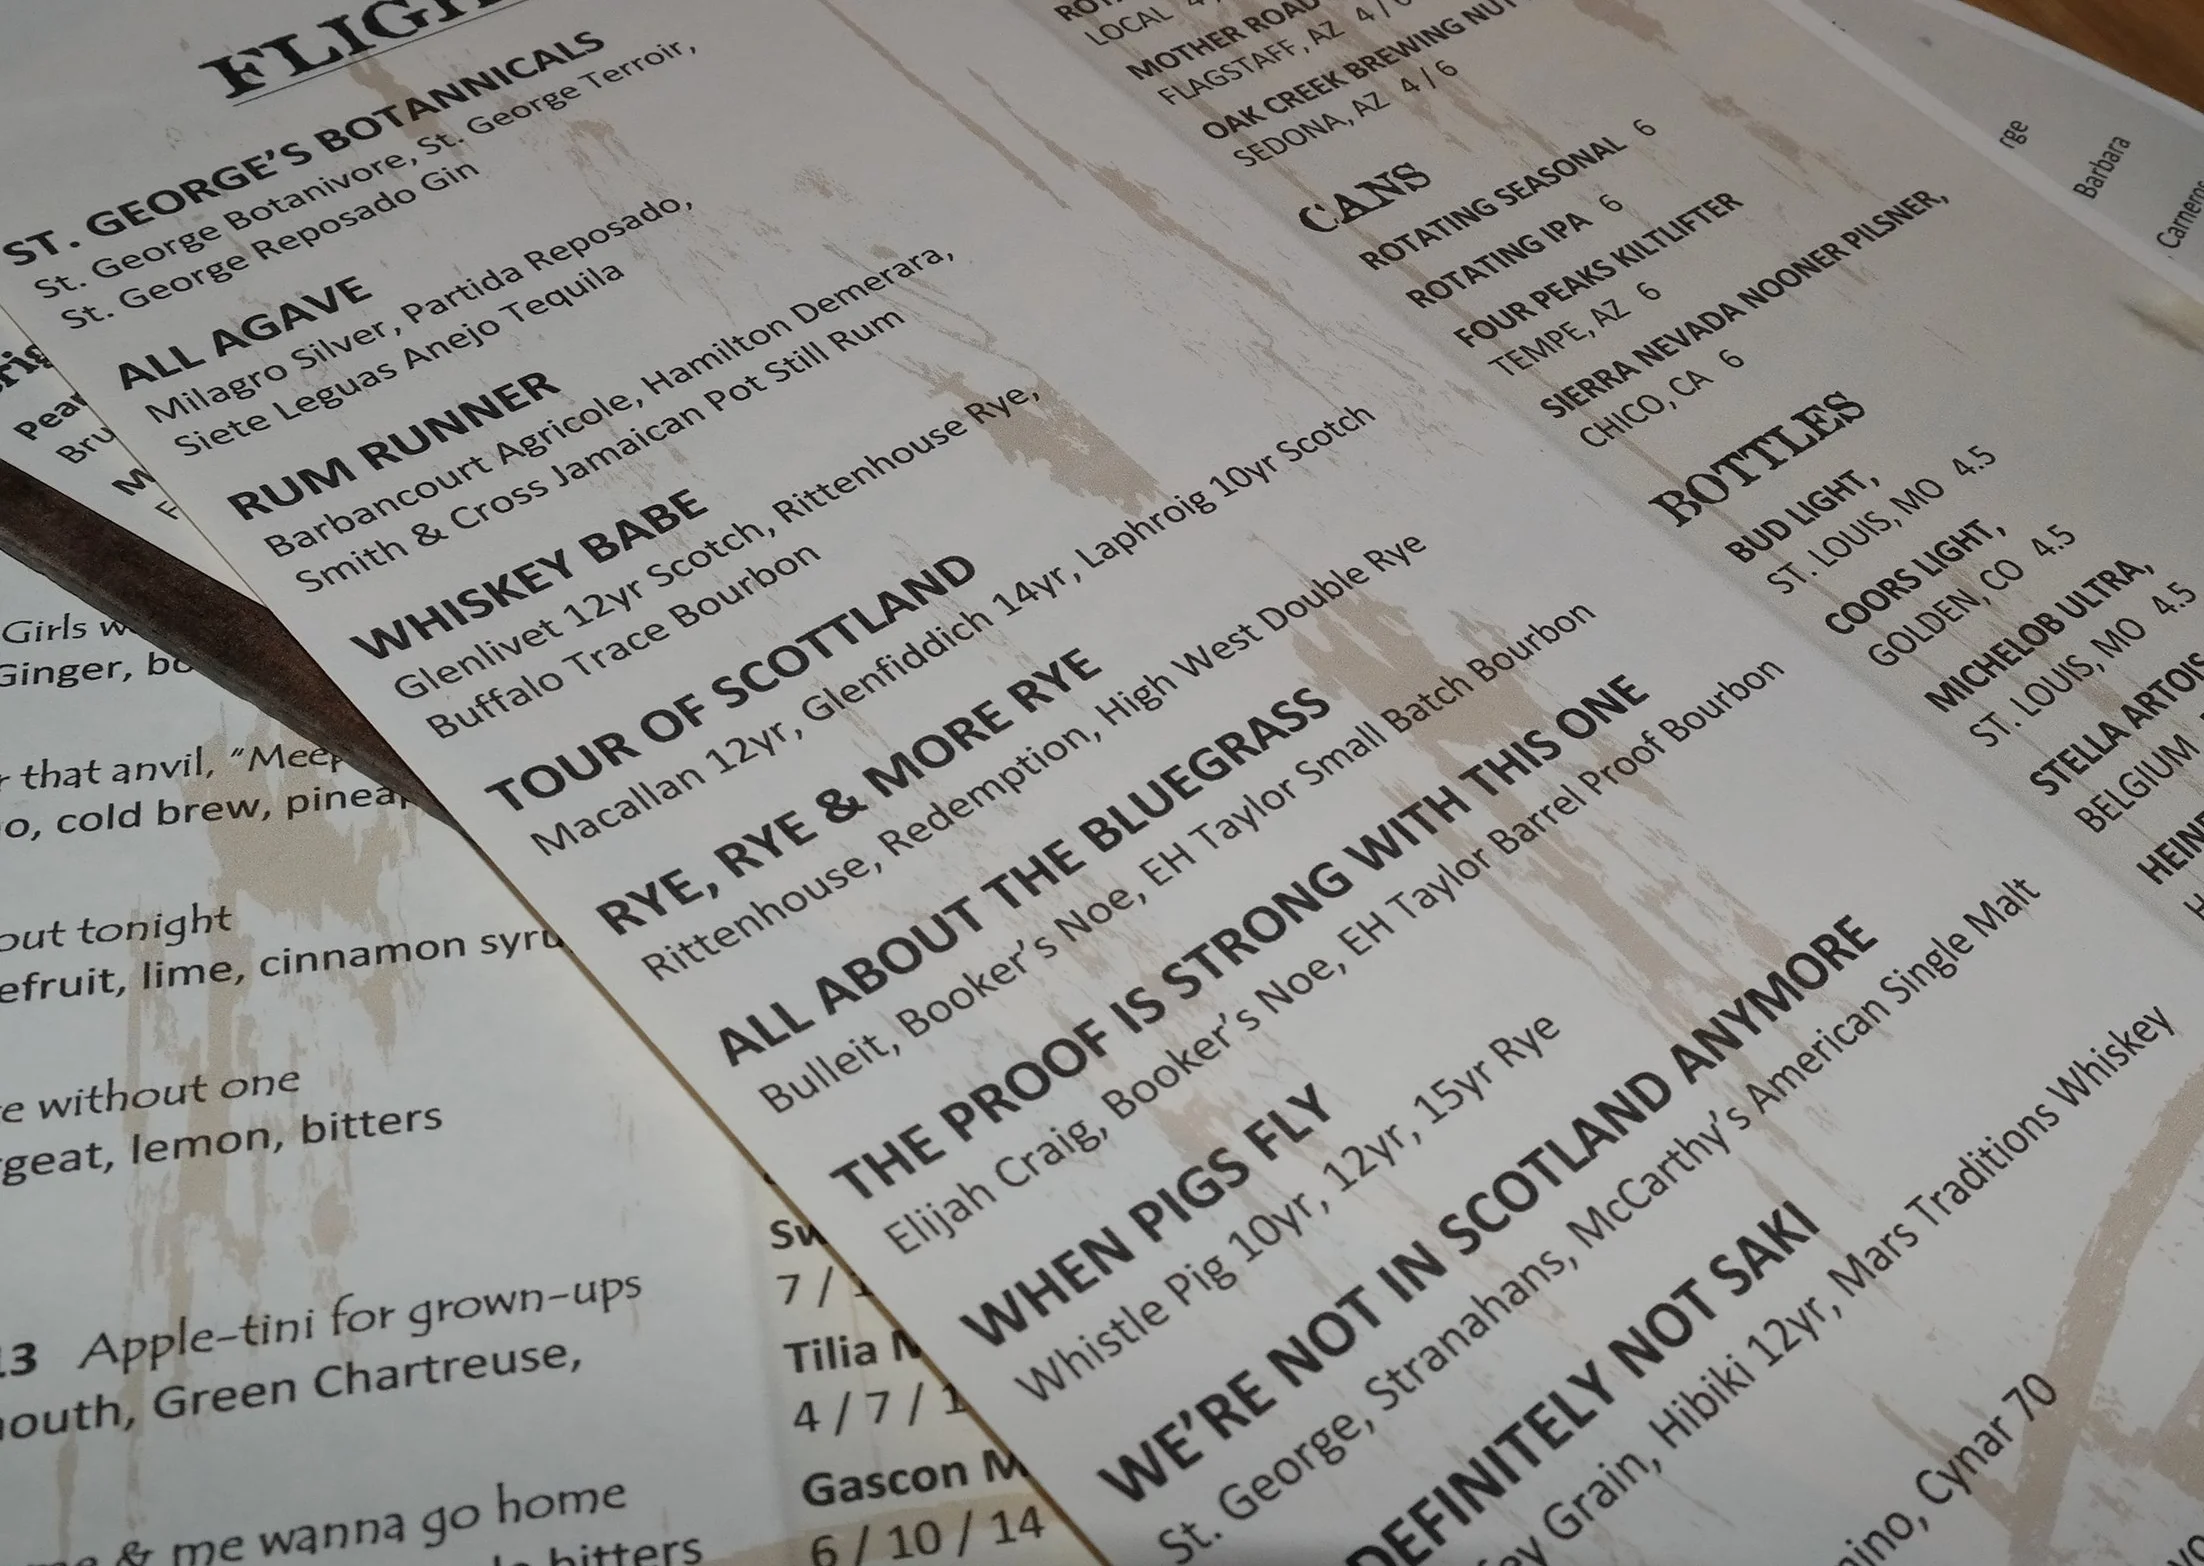 ST. GEORGE'S BOTANNICALS
St. George Botanivore, St. George Terroir,
St. George Reposado Gin
ALL AGAVE
Milagro Silver, Partida Reposado,
Siete Leguas Anejo Tequila
RUM RUNNER
Barbancourt Agricole, Hamilton Demerara,
Smith & Cross Jamaican Pot Still Rum
WHISKEY BABE
Glenlivet 12yr Scotch, Rittenhouse Rye,
Buffalo Trace Bourbon
TOUR OF SCOTTLAND
Macallan 12yr, Glenfiddich 14yr, Laphroig 10yr Scotch
RYE, RYE & MORE RYE
Rittenhouse, Redemption, High West Double Rye
ALL ABOUT THE BLUEGRASS
Bulleit, Booker's Noe, EH Taylor Small Batch Bourbon
THE PROOF IS STRONG WITH THIS ONE
Elijah Craig, Booker's Noe, EH Taylor Barrel Proof Bourbon
WHEN PIGS FLY
Whistle Pig 10yr, 12yr, 15yr Rye
WE'RE NOT IN SCOTLAND ANYMORE
St. George, Stranahans, McCarthy's American Single Malt
DEFINITELY NOT SAKI
Grain, Hibiki 12yr, Mars Traditions Whiskey
Cynar 70
LOCAL 4
MOTHER ROAD
FLAGSTAFF, AZ 4 /
OAK CREEK BREWING NUT
SEDONA, AZ 4 / 6
CANS
ROTATING SEASONAL 6
ROTATING IPA 6
FOUR PEAKS KILTLIFTER
TEMPE, AZ 6
SIERRA NEVADA NOONER PILSNER,
CHICO, CA 6
BOTTLES
BUD LIGHT,
ST. LOUIS, MO 4.5
COORS LIGHT,
GOLDEN, CO 4.5
MICHELOB ULTRA,
ST. LOUIS, MO 4.5
STELLA ARTOIS
BELGIUM
Barbara
Girls
Ginger,
that anvil, "Meep
cold brew,
out tonight
lime, cinnamon
without one
lemon, bitters
Apple-tini for grown-ups
Green Chartreuse,
& me wanna go home
bitters
7 /
Tilia
4 / 7 /
Gascon
6 / 10 / 14